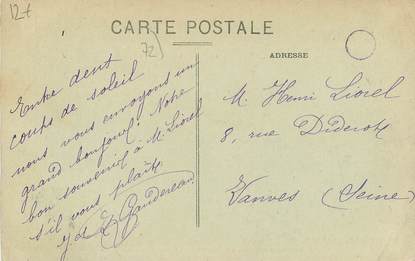 12+
CARTE POSTALE
72
ADRESSE
Entre dent
coups de soleil
nous vous envoyons un
grand bonjour. Notre
bon souvenir à M. Liorel
s'il vous plaît.
J. et E. Gaudereau
M. Henri Liorel
8, rue Diderot
Vanves (Seine)